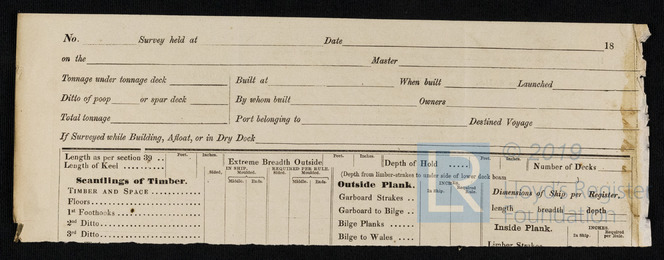 No. Survey held at Date 18
on the Master
Tonnage under tonnage deck Built at When built Launched
Ditto of poop or spar deck By whom built Owners
Total tonnage Port belonging to Destined Voyage
If Surveyed while Building, Afloat, or in Dry Dock
Length as per section 39 .. Feet. Inches. Extreme Breadth Outside Feet. Inches. Depth of Hold ..... Feet. Inches. Number of Decks
Length of Keel ..........
(Depth from limber-strakes to under side of lower deck beam
Scantlings of Timber. Sided. IN SHIP. Moulded. REQUIRED PER RULE. Moulded.
Middle. Ends. Sided. Middle. Ends.
Outside Plank. INCHES. In Ship. Required Rule.
Dimensions of Ship per Register,
length breadth depth
TIMBER AND SPACE
Floors
1st Foothooks
2nd Ditto
3rd Ditto
Garboard Strakes ..
Garboard to Bilge ..
Bilge ..
Bilge to Wales ..
Inside Plank. INCHES. In Ship. Required per Rule.
Limber Strakes
LR
© 2019
Lloyd's Register
Foundation